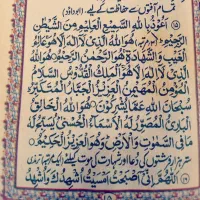 تمام آفتوں سے حفاظت کے لیے
اَعُوْذُ بِاللّٰهِ السَّمِيْعِ الْعَلِيْمِ مِنَ الشَّيْطٰنِ
الرَّجِيْمِ هُوَ اللّٰهُ الَّذِيْ لَآ اِلٰهَ اِلَّا هُوَ عَالِمُ
الْغَيْبِ وَالشَّهَادَةِ هُوَ الرَّحْمٰنُ الرَّحِيْمُ هُوَ اللّٰهُ
الَّذِيْ لَآ اِلٰهَ اِلَّا هُوَ اَلْمَلِكُ الْقُدُّوْسُ السَّلَامُ
الْمُؤْمِنُ الْمُهَيْمِنُ الْعَزِيْزُ الْجَبَّارُ الْمُتَكَبِّرُ
سُبْحَانَ اللّٰهِ عَمَّا يُشْرِكُوْنَ هُوَ اللّٰهُ الْخَالِقُ
الْبَارِئُ الْمُصَوِّرُ لَهُ الْاَسْمَاءُ الْحُسْنٰى يُسَبِّحُ لَهٗ
مَا فِي السَّمٰوٰتِ وَالْاَرْضِ وَهُوَ الْعَزِيْزُ الْحَكِيْمُ
ستر ہزار فرشتوں کی دعا اور شہادت کی موت کے لیے
اَللّٰهُمَّ اِنِّيْ اَصْبَحْتُ اُشْهِدُكَ وَاُشْهِدُ